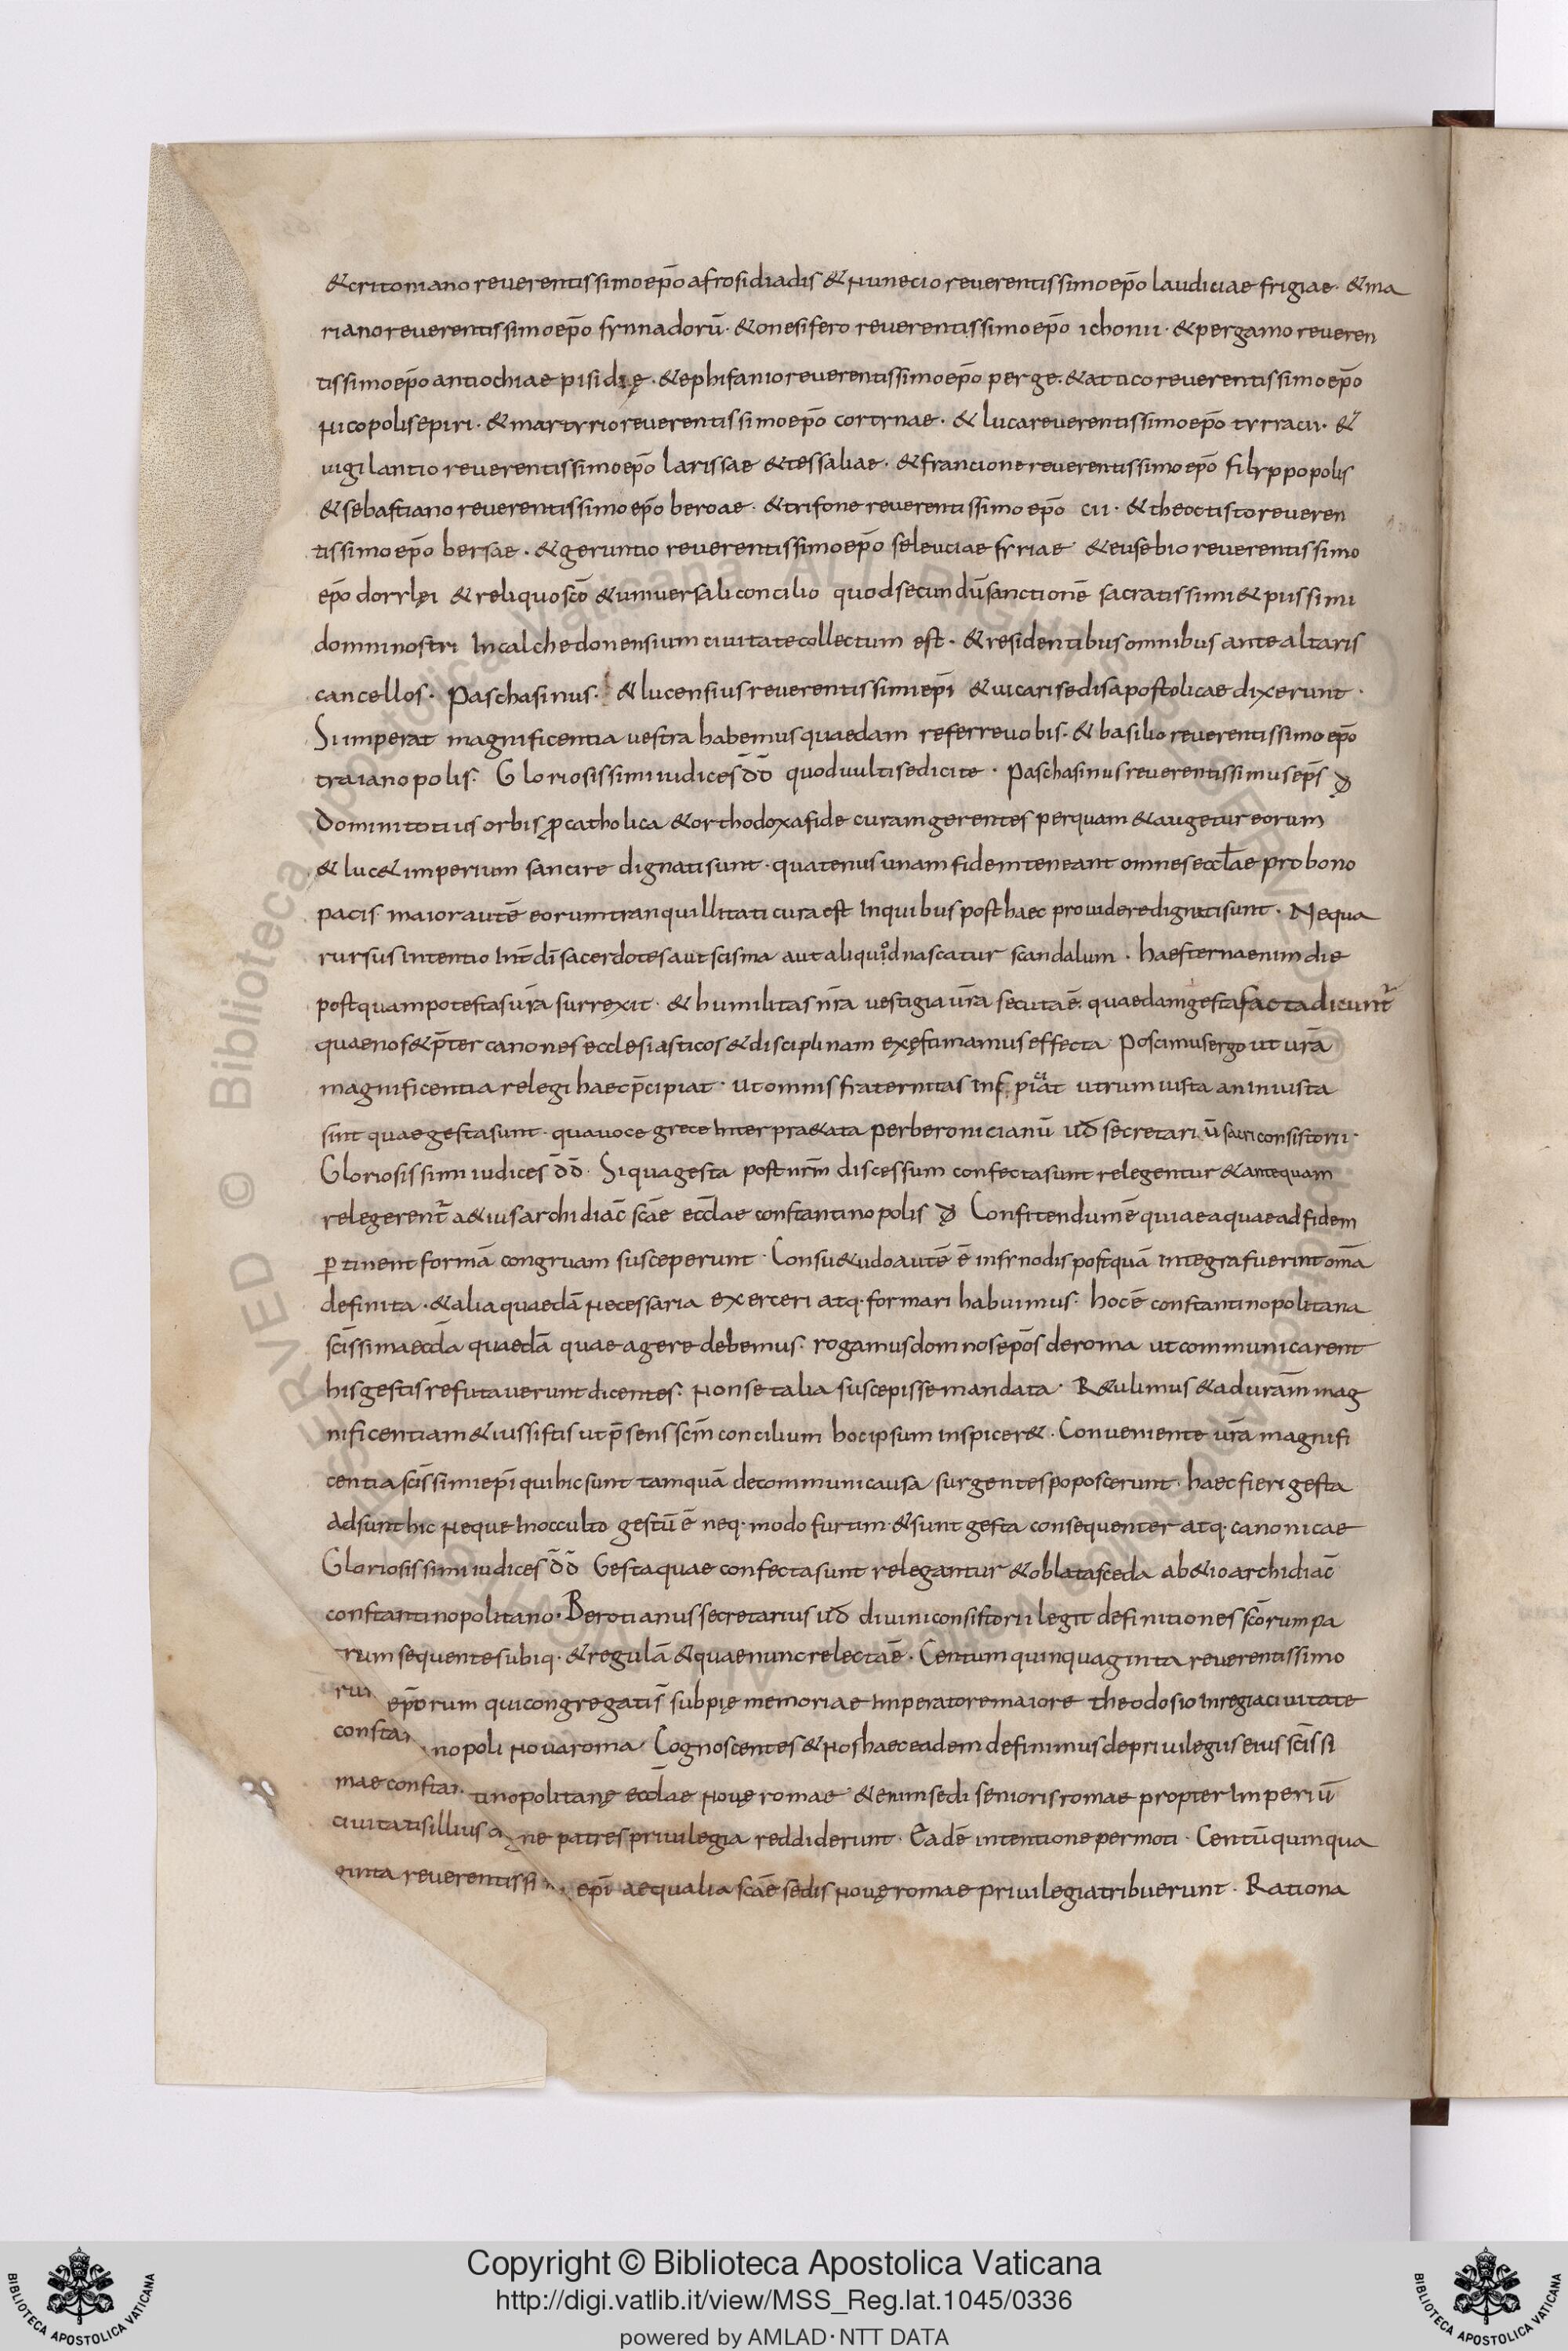 & critoniano reverentissimo ep̄o afrosidiadis & nunecio reverentissimo ep̄o laudiciae frigiae · & ma
riano reverentissimo ep̄o synnadorū · & onesifero reverentissimo ep̄o ichonii · & pergamo reveren
tissimo ep̄o antiochiae pisidię · & ephifanio reverentissimo ep̄o perge · & attico reverentissimo ep̄o
nicopolis epiri · & martyrio reverentissimo ep̄o cortynae · & luca reverentissimo ep̄o tyrracii · &
uigilantio reverentissimo ep̄o larissae & tessaliae · & francione reverentissimo ep̄o filyppopolis
& sebastiano reverentissimo ep̄o beroae · & trifone reverentissimo ep̄o cii · & theoctisto reveren
tissimo ep̄o bersae · & geruntio reverentissimo ep̄o seleuciae syriae · & eusebio reverentissimo
ep̄o dorylęi & reliquo sc̄o & universali concilio quod secundū sanctionē sacratissimi & piissimi
domini nostri In calchedonensium civitate collectum est · & residentibus omnibus ante altaris
cancellos · Paschasinus · & lucensius reverentissimi ep̄i & vicari sedis apostolicae dixerunt ·
Si imperat magnificentia vestra habemus quaedam referre vobis · & basilio reverentissimo ep̄o
traianopolis · Gloriosissimi iudices d̄d̄ quod vultis edicite · Paschasinus reverentissimus ep̄s đ
Domini totius orbis ꝓ catholica & orthodoxa fide curam gerentes per quam & augetur eorum
& luc& imperium sancire dignati sunt · quatenus unam fidem teneant omnes eccl̄ae pro bono
pacis maior autē eorum tranquillitati cura est In quibus post haec providere dignati sunt · Nequa
rursus intentio Int̄ dī sacerdotes aut scisma aut aliquid nascatur scandalum · haesterna enim die
postquam potestas ūra surrexit · & humilitas n̄ra vestigia ūra secuta ē quaedam gesta facta dicunt̄
quae nos & p̄ter canones ecclesiasticos & disciplinam exęstimamus effecta · Poscimus ergo ut ūra
magnificentia relegi haec p̄cipiat · Ut omnis fraternitas Inspiciat utrum iusta an iniusta
sint quae gesta sunt · qua voce grece Inter pr&ata per beronicianū ud̄ secretariū sacri consistorii ·
Gloriosissimi iudices d̄d̄ · Siqua gesta post nr̄m discessum confecta sunt relegentur & antequam
relegerent̄ a&ius archidiac̄ sc̄ae eccl̄ae constantinopolis đ Confitendum ē quia ea quae ad fidem
ꝑtinent formā congruam susceperunt · Consu&udo autē ē in synodis postquā Integra fuerint om̄a
definita · & alia quaedā necessaria exerceri atq· formari habuimus · hoc ē constantinopolitana
sc̄issima eccl̄a quaedā quae agere debemus · rogamus domnos ep̄os de roma ut communicarent
his gestis refutaverunt dicentes · non se talia suscepisse mandata · R&ulimus & ad ūram mag
nificentiam & iussistis ut p̄sens sc̄m concilium hoc ipsum inspicer& · Conveniente ūra magnifi
centia sc̄issimi ep̄i qui hic sunt tamquā de communi causa surgentes poposcerunt · haec fieri gesta
adsunt hic neque In occulto gestū ē neq· modo furtim · & sunt gesta consequenter atq· canonicae
Gloriosissimi iudices d̄d̄ Gesta quae confecta sunt relegantur & oblata sceda ab &io archidiac̄
constantinopolitano · Berotianus secretarius ud̄ divini consistorii legit definitiones sc̄orum pa
trum sequentes ubiq· & regulā & quae nunc relecta ē · Centum quinquaginta reverentissimo
rum ep̄orum qui congregati s̄ sub pię memoriae Imperatore maiore theodosio In regia civitate
constantinopoli nova roma · Cognoscentes & nos haec eadem definimus de privilegiis eius sc̄issi
mae constantinopolitanę eccl̄ae novę romae · & enim sedi senioris romae propter Imperiū
civitatis illius ne patres privilegia reddiderunt · Eadē intentione permoti · Centū quinqua
ginta reverentissimi ep̄i aequalia sc̄ae sedis novę romae privilegia tribuerunt · Rationa
Copyright © Biblioteca Apostolica Vaticana
http://digi.vatlib.it/view/MSS_Reg.lat.1045/0336
powered by AMLAD·NTT DATA